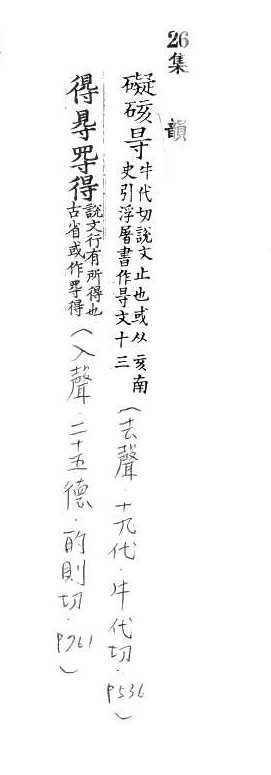 26集韻
礙硋㝵牛代切說文止也或从亥南史引浮屠書作㝵文十三(去聲.十九代.牛代切.P536)
得㝵㝶𢔶說文行有所得也古省或作㝶𢔶(入聲.二十五德.的則切.P761)